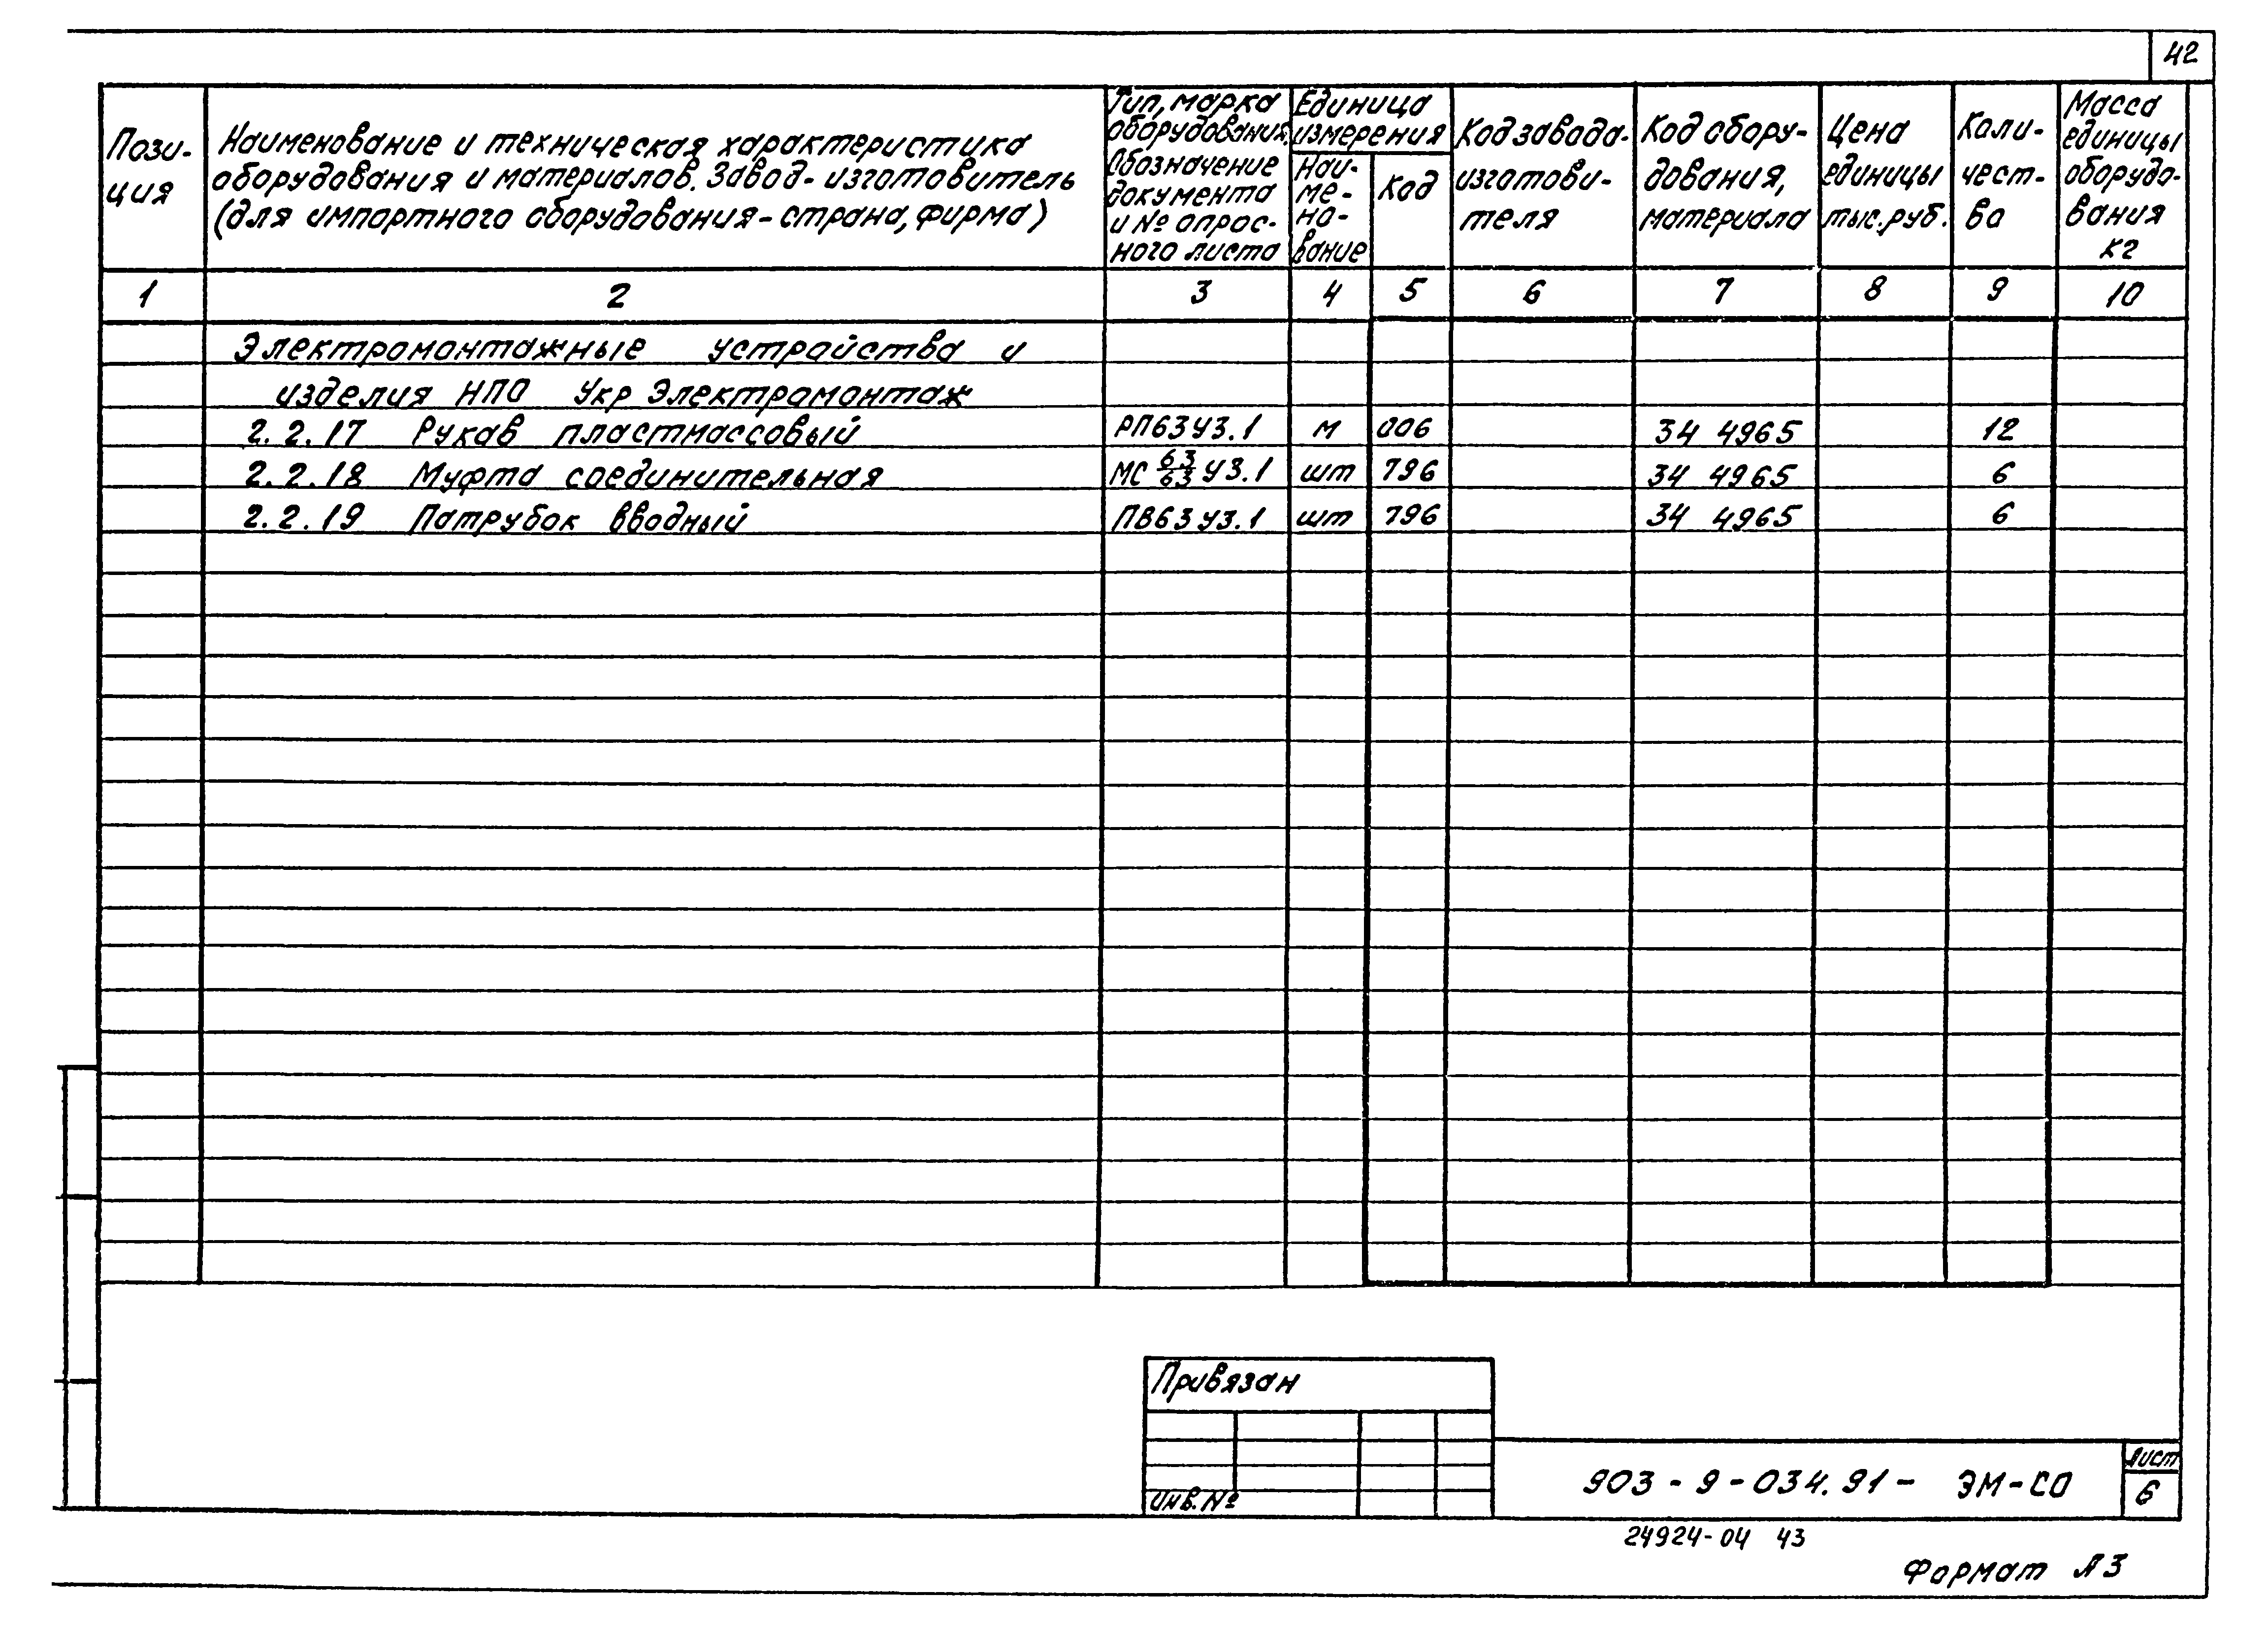 42
Пози-
ция
Наименование и техническая характеристика
оборудования и материалов. Завод-изготовитель
(для импортного оборудования-страна, фирма)
Тип, марка
оборудования.
Обозначение
документа
и № опрос-
ного листа
Единица
измерения
Наи-
ме-
но-
вание
Код
Код завода-
изготови-
теля
Код обору-
дования,
материала
Цена
единицы
тыс. руб.
Коли-
чест-
во
Масса
единицы
оборудо-
вания
кг
1 2 3 4 5 6 7 8 9 10
Электромонтажные устройства и
изделия НПО Укр Электромонтаж
2.2.17 Рукав пластмассовый РП63У3.1 м 006 34 4965 12
2.2.18 Муфта соединительная МС 63/63 У3.1 шт 796 34 4965 6
2.2.19 Патрубок вводный ПВ63У3.1 шт 796 34 4965 6
Привязан
Инв. №
903-9-034.91- ЭМ-СО
Лист
6
24924-04 43
Формат А3